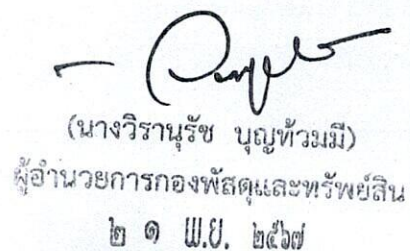 (นางวิรานุรัช บุญท้วมมี)
ผู้อำนวยการกองพัสดุและทรัพย์สิน
๒ ๑ พ.ย. ๒๕๖๗